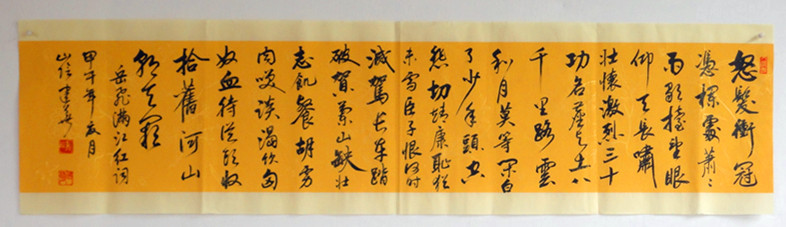 怒髮衝冠
憑欄處蕭〻
雨歇擡望眼
仰天長嘯
壯懷激烈三十
功名塵与土八
千里路雲
和月莫等閑白
了少年頭空
悲切靖康恥猶
未雪臣子恨何時
滅駕長車踏
破賀蘭山缺壯
志飢餐胡虜
肉笑談渴飲匈
奴血待從頭收
拾舊河山
朝天闕
岳飛滿江紅詞
甲午年月